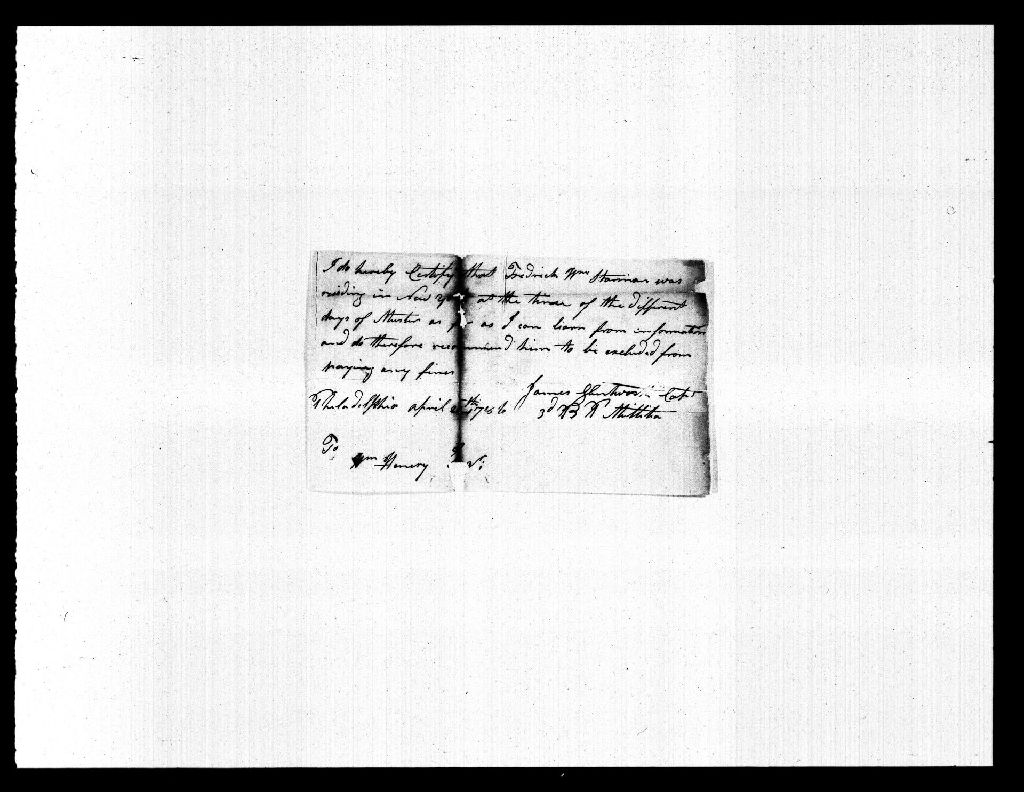 I do hereby Certify that Fredrick Wm was
residing in New York at the time of the different
days of Muster as far as I can learn from information
and do therefore recommend him to be excluded from
paying any fines
James Capt
Philadelphia April 1786 3d B P Militia
To
Wm Henery